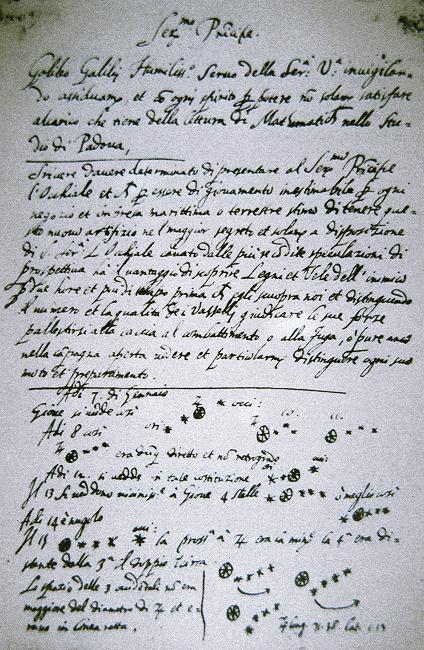 Ser.mo Prĩcipe.
Galileo Galilei Humiliss.o Servo della Ser.a V.a invigilan-
do assiduam.te, et cõ ogni spirito p potere nõ solam.te satisfare
alcarico che tiene della lettura di Mathematich nello Stu-
dio di Padova,
Scrivere davere determinato di presentare al Ser.mo Prĩcipe
l'Ochiale et p essere di giovamento inestimabile p ogni
negozio et impresa marittima o terrestre stimo di tenere que-
sto nuovo artifizio nel maggior segreto et solam.te a disposizione
di S. Ser.tà L'Ochiale cavato dalle più recõdite speculazioni di
prospettiva hà il vantaggio di scoprire Legni et Vele dell' inimico
p due hore et più di tempo prima ch egli scuopra noi et distinguendo
il numero et la qualità de i Vasselli giudicare le sue forze
pallestirsi alla caccia al combattimento o alla fuga, o pure anco
nella cãpagna aperta vedere et particolarm.te distinguere ogni suo
moto et preparamento.
Adi 7. di Gennaio
Giove si vedde così
Adi 8 così
era dũq diretto et nõ retrogrado
Adi 12. si vedde in tale costituzione
Il 13 si veddono vicinissi.e à Giove 4 stelle ò meglio così
Adi 14 è nugolo
Il 15 la pross.a à 4 era la min.e la 4.a era di-
stante dalla 3.a il doppio
Lo spazio delle 3 occidentali nõ era
maggiore del diametro di 4 et e-
rano in linea retta.